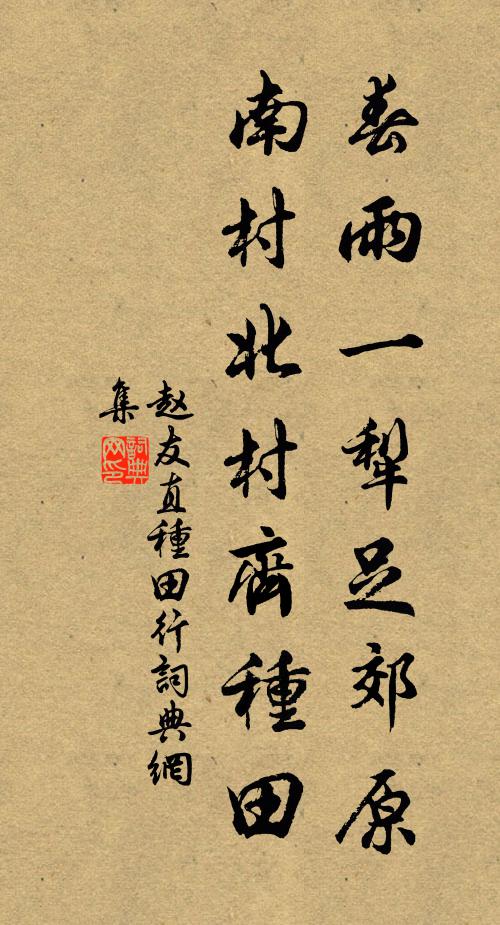 春雨一犁足郊原
南村北村齊種田
赵友直種田行詞典網
集
詞典
网印